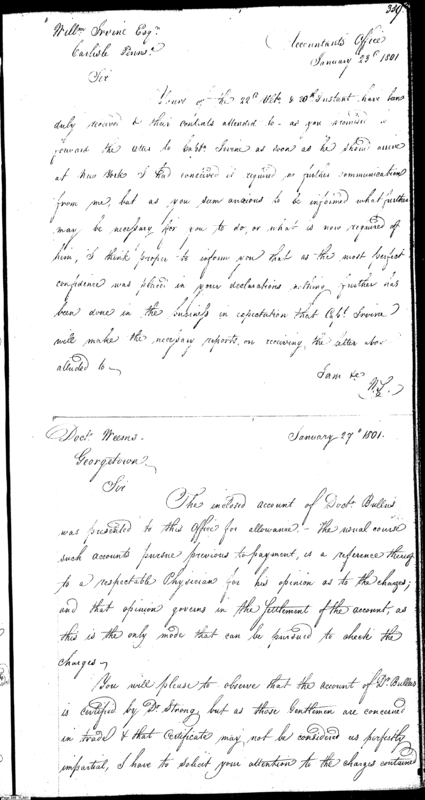 349
Willm Irvine Esqr.
Carlisle Penns.a
Accountants Office
January 23d 1801
Sir
Yours of the 22d Ulto. & 20th Instant have been
duly received & their contents attended to - as you promised to
forward the to Capt. Irvine as soon as he should arrive
at New York I had conceived it required no further communication
from me, but as you seem anxious to be informed what further
may be necessary for you to do, or what is now required of
him, I think proper to inform you that as the most perfect
confidence was placed in your declarations nothing further has
been done in the business in expectation that Capt. Irvine
will make the necessary reports, on receiving the letter above
alluded to -
I am &c
W.S.
Doct. Weems.
Georgetown
January 27th 1801.
Sir
The inclosed account of Doctr. Bullus
was presented to this Office for allowance. - the usual course
such accounts pursue previous to payment, is a reference thereof
to a respectable Physician for his opinion as to the charges;
and that opinion governs in the Settlement of the account, as
this is the only mode that can be pursued to check the
charges -
You will please to observe that the account of Dr. Bullus
is certified by Dr. Strong, but as those Gentlemen are concerned
in trade & that certificate may not be considered as perfectly
impartial, I have to solicit your attention to the charges contained